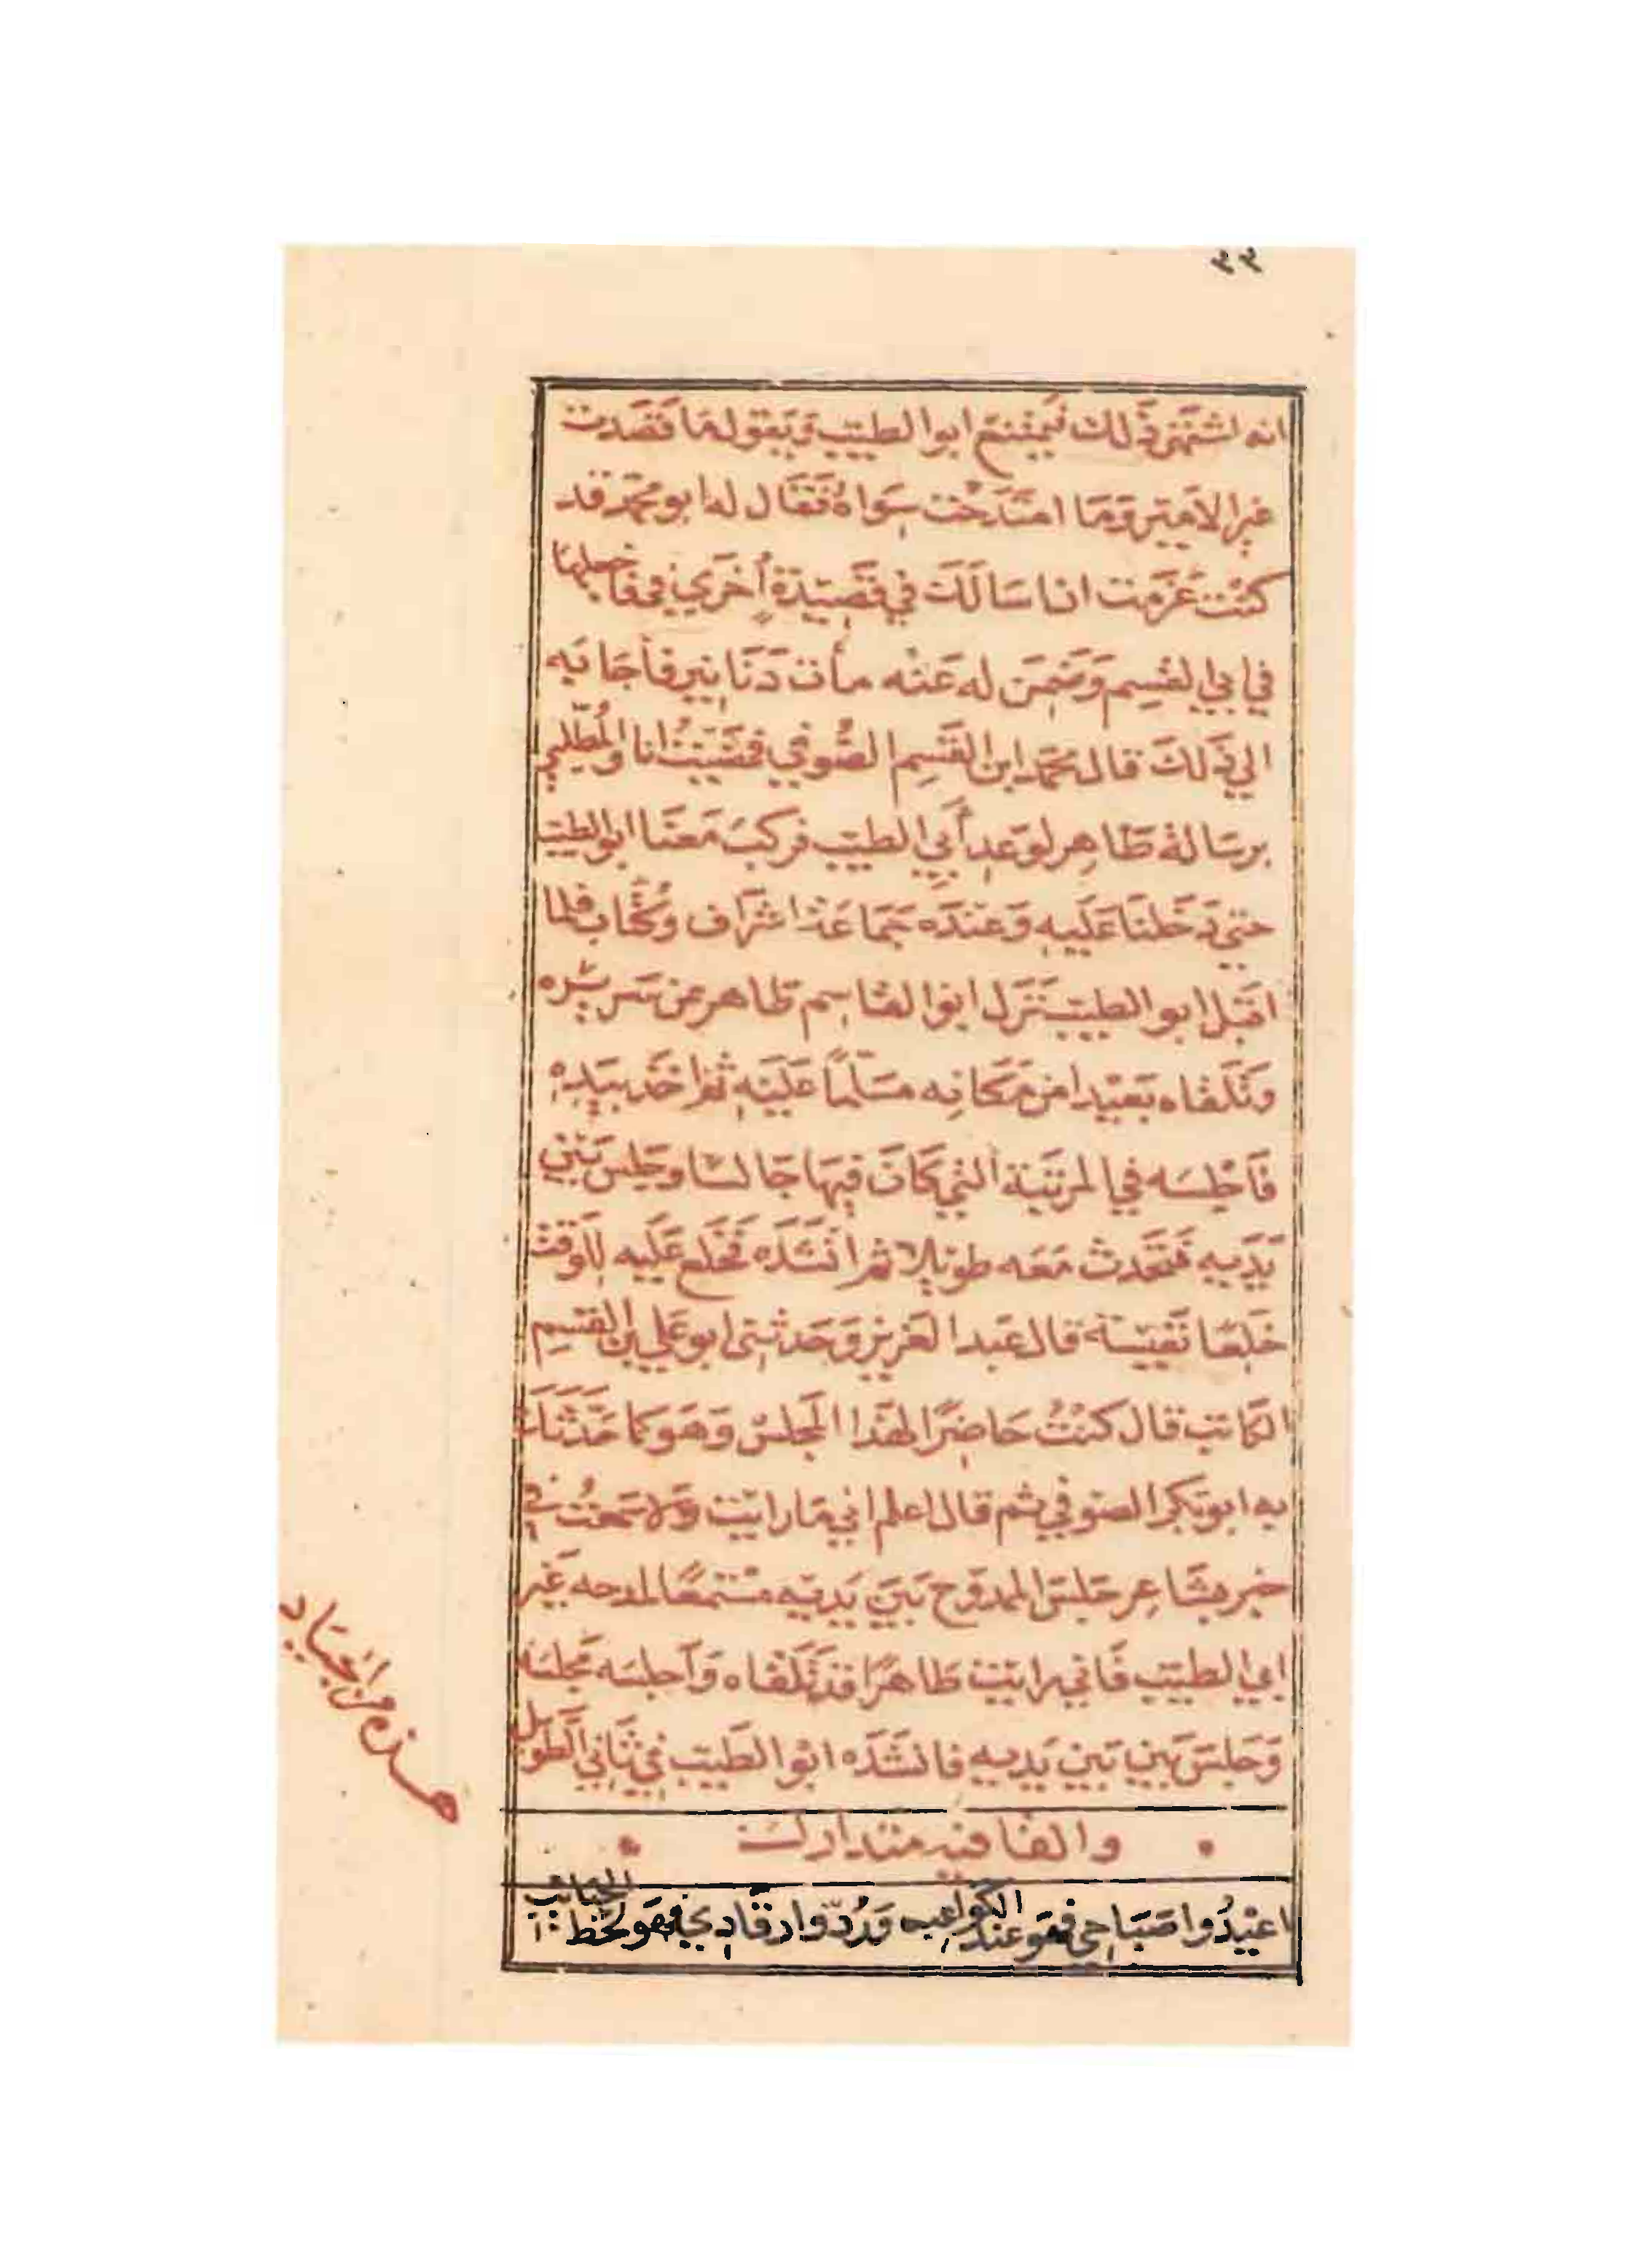 ٤٤
انه اشتهى ذلك فيمتنع ابوا الطيب ويقول ما قصدت
غير الامير وما امتدحت سواه فقال له ابو محمد قد
كنت عزمت ان اسالك في قصيدة أخري في فاجعلها
في ابي القسم وضمن له عنه مأت دنانير فأجابه
الي ذلك قال محمد ابن القسم الصوفي فمشيت انا والمطلبي
برسالة طاهر لوعد أبي الطيب فركب معنا ابو الطيب
حتي دخلنا عليه وعنده جماعة اشراف وكتاب فلما
اقبل ابو الطيب نزل ابوا القاسم طاهر عن سريره
وتلقاه بعيدا من مكانه مسلما عليه ثم اخذ بيده
فاجلسه في المرتبة التي كان فيها جالسا وجلس بين
يديه فتحدث معه طويلا ثم انشده فخلع عليه للوقت
خلعا نفيسة قال عبد العزيز وحدثني ابو علي بن القسم
الكاتب قال كنت حاضرا لهذا المجلس وهو كما حدثنا
به ابو بكر الصوفي ثم قال اعلم اني ما رايت ولا سمعت في
خبر شاعر جلس الممدوح بين يديه مستمعا لمدحه غير
ابي الطيب فاني رايت طاهرا قد تلقاه وأجلسه مجلسه
وجلس بين بين يديه فانشده ابوا الطيب في ثاني الطويل
والقافيه متدارك
اعيدوا صباحي فهو عند الكواعب وردوا رقادي فهو لحظ الحبائب
هذه من الجياد